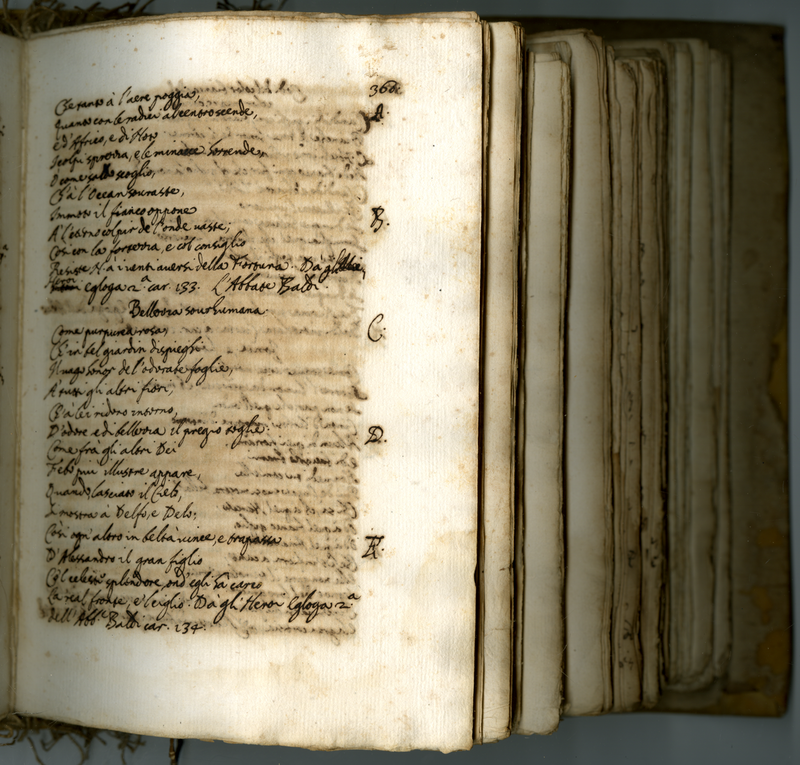 360.
Che tanto à l'aere poggia,
Quanto con le radici al centro scende,
e d'Affrico, e di Noto
I colpi sprezza, e le minacce horrende,
O come saldo scoglio,
Ch'à l'Ocean sourasta,
Immoto il fianco oppone
A l'eterno colpir de l'onde uaste;
Così con la fortezza, e col consiglio
Resiste à i uenti auersi della Fortuna. Da gli
Egloga 2.ª car. 133. L'Abbate Baldi
Bellezza sour'humana.
Come purpurea rosa,
Ch'in bel giardin dispieghi
Il uago honor de l'odorate foglie,
A tutti gli altri fiori,
Ch'à lei ridono intorno,
D'odore e di bellezza il pregio toglie:
Come fra gli altri Dei
Febo piu illustre appare,
Quando lasciato il Cielo,
Si mostra à Delfo, e Delo;
Così ogn'altro in beltà uince, e trapassa
D'Alessandro il gran figlio
Col celeste splendore, ond'egli hà carco
La real fronte, e'l ciglio. Da gli Heroi Egloga 2.ª
dell'Abb.e Baldi car. 134.
A.
B.
C.
D.
E.